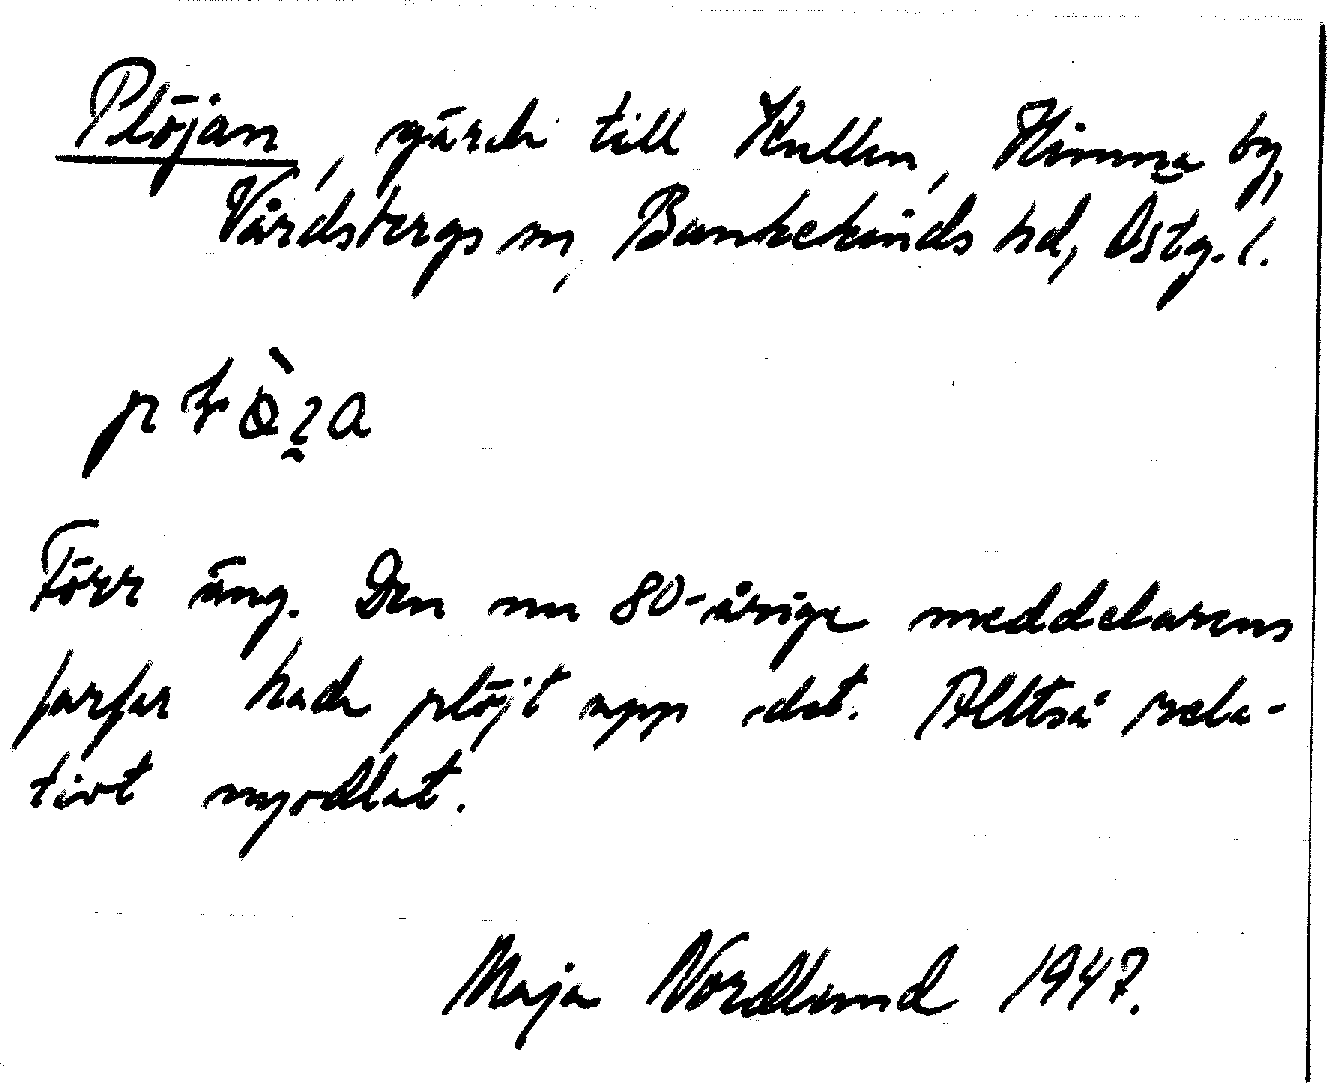 Plöjan, gärde till Kullen, Himna by,
Vårdsbergs sn, Bankekinds hd, Östg. l.
Förr äng. Den nu 80-årige meddelarens
farfar hade plöjt upp det. Alltså rela-
tivt nyodlat.
Maja Nordlund 1947.